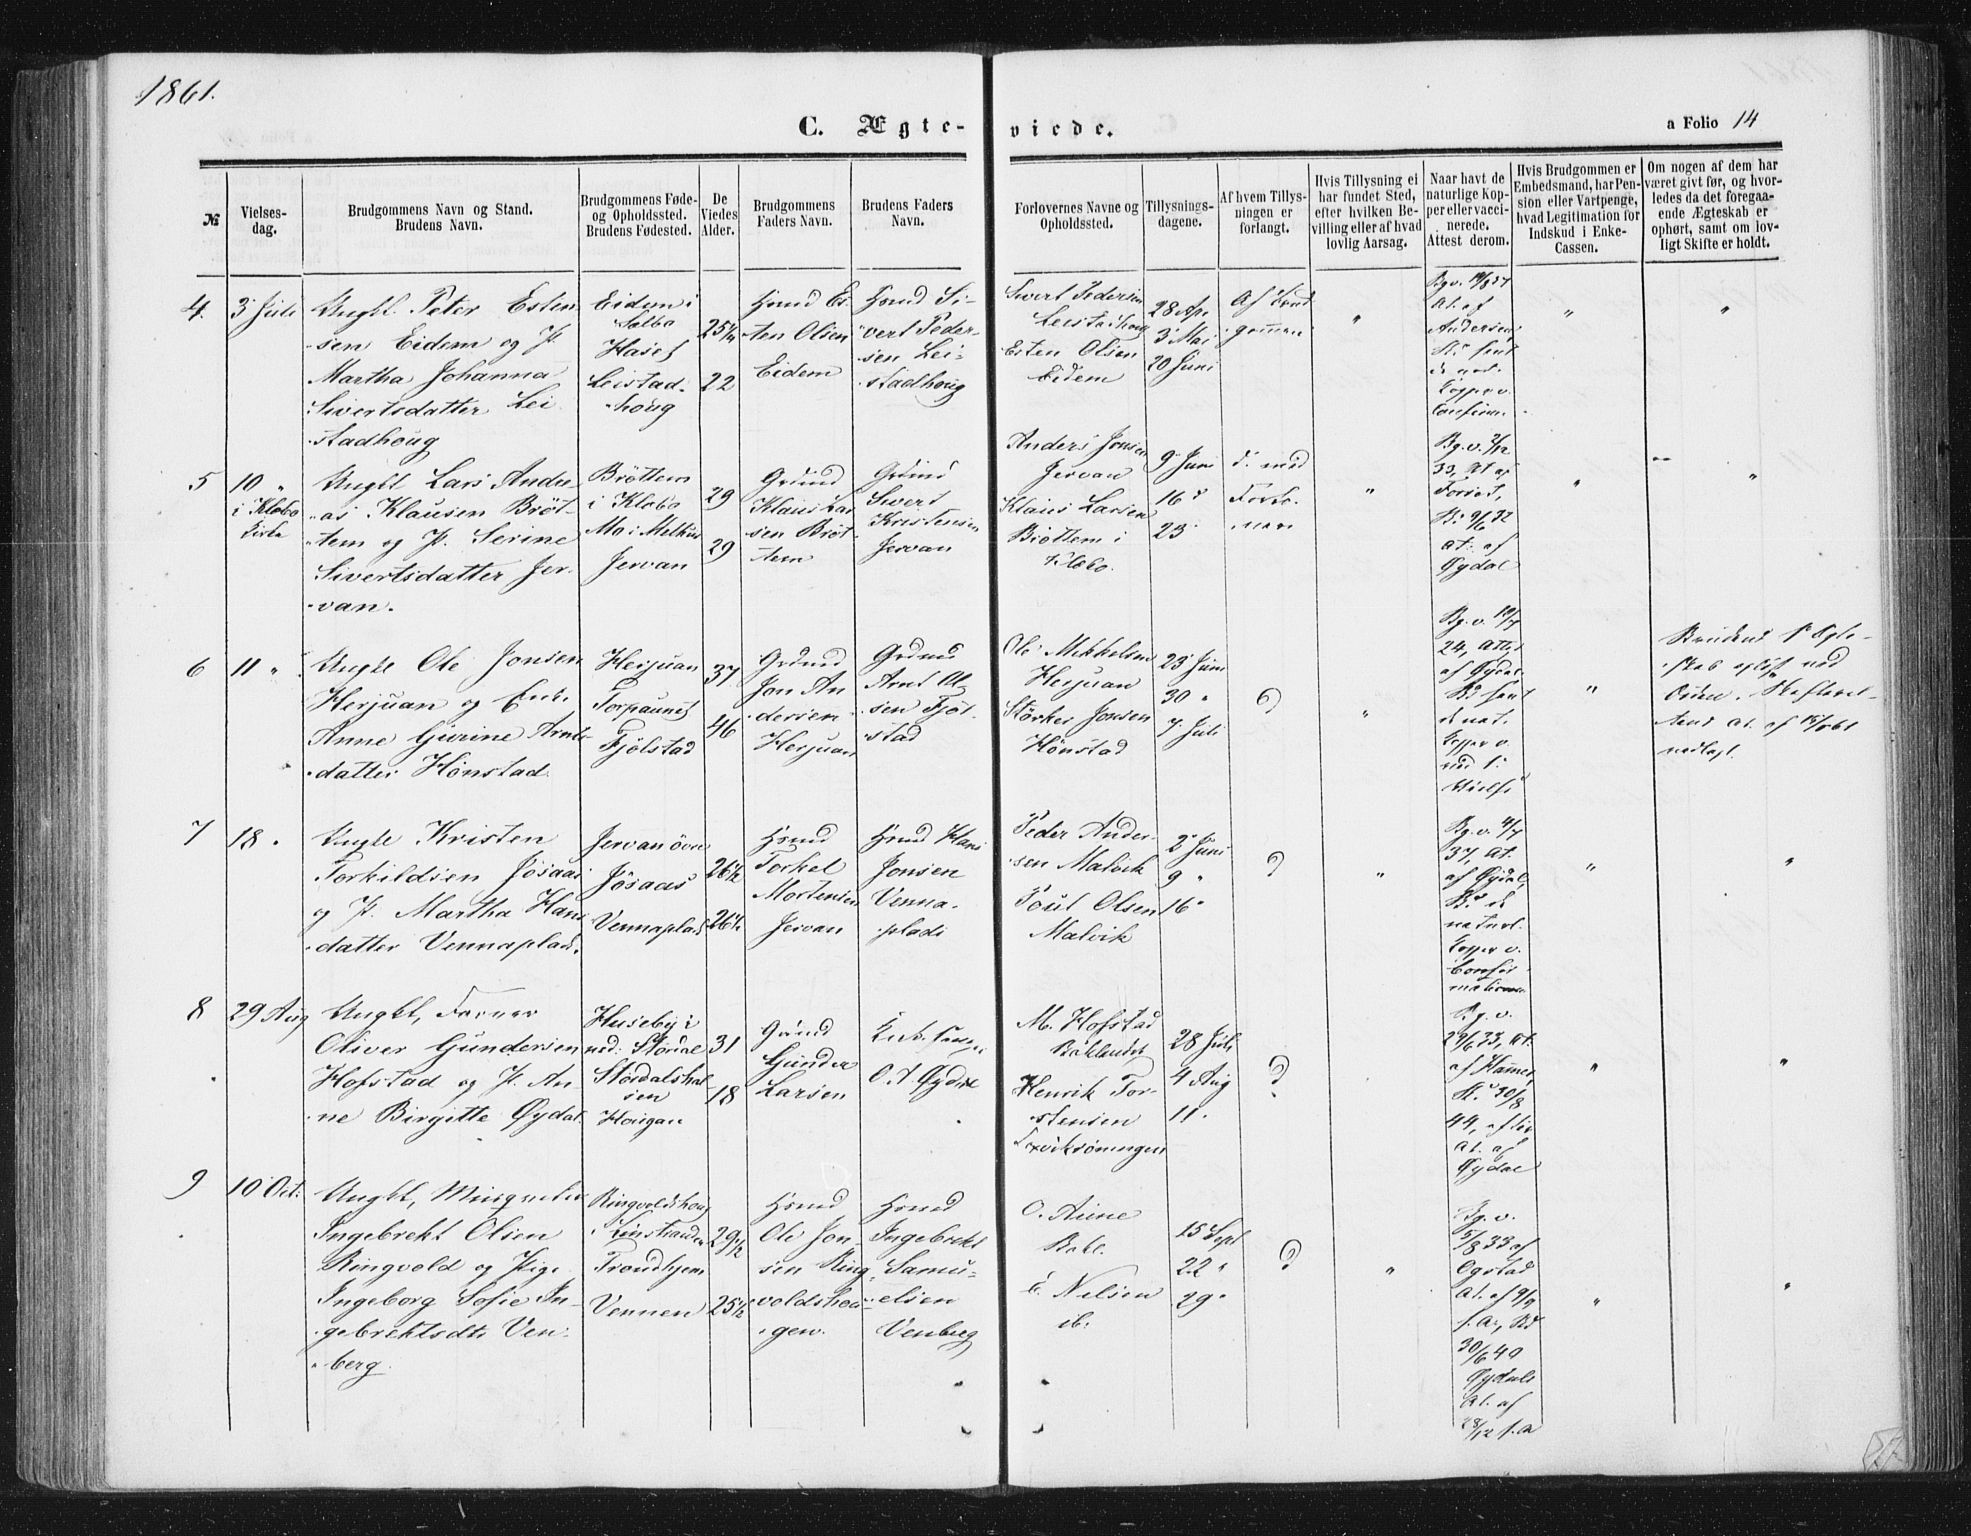 1861.
C. Ægte-
viede.
a Folio 14
№
Vielses-
dag.
Brudgommens Navn og Stand.
Brudens Navn.
Brudgommens Føde-
og Opholdssted.
Brudens Fødested.
De
Viedes
Alder.
Brudgommens
Faders Navn.
Brudens Faders
Navn.
Forlovernes Navne og
Opholdssted.
Tillysnings-
dagene.
Af hvem Tillys-
ningen er
forlangt.
Hvis Tillysning ei
har fundet Sted,
efter hvilken Be-
villing eller af hvad
lovlig Aarsag.
Naar havt de
naturlige Kop-
per eller vacci-
nerede.
Attest derom.
Hvis Brudgommen er
Embedsmand, har Pen-
sion eller Vartpenge,
hvad Legitimation for
Indskud i Enke-
Cassen.
Om nogen af dem har
været givt før, og hvor-
ledes da det foregaa-
ende Ægteskab er
ophørt, samt om lov-
ligt Skifte er holdt.
4.
3 Juli
Ungkl. Peter Esten
sen Eidem og P.
Martha Johanna
Sivertsdatter Lei
stadhoug
Eidem i
Selbo
Leistad
houg
25½
22
Hsmd Es
ten Olsen
Eidem
Hsmd Si-
vert Peder-
sen Lei-
stadhoug
Sivert Pedersen
Leistadhoug
Esten Olsen
Eidem
28 Apr
3 Mai
20 Juni
Af Brud
gommen
"
At. af
Andersen,
Confirm.
"
"
5
10 "
i Klæbo
Kirke
Ungkl Lars Andre
as Klausen Brøt-
tem og P. Serine
Sivertsdatter Jer
van.
Brøttem
i Klæbo
Mo i Melhus
Jervan
29
29
Grdmd
Klaus Lar
sen Brøt
tem
Grdmd
Sivert
Kristensen
Jervan
Anders Jonsen
Jervan
Klaus Larsen
Brøttem i
Klæbo.
9 Juni
16 "
23
Forlo
veren
"
33, At af
At. af
Øydal
"
"
6
11 "
Ungkl Ole Jonsen
Herjuan og Enke
Anne Gurine Arnts
datter Hønstad
Herjuan
Torpaunet
Fjølstad
37
46
Grdmd
Jon An
dersen
Herjuan
Grdmd
Arnt Ol
sen Fjøl
stad
Ole Mikkelsen
Herjuan
Størker Jonsen
Hønstad
23 Juni
30 "
7 Juli
"
24, Att.
af Øydal
"
Brudens 1e Ægte-
skab opløst ved
Døden. Skifteret-
tens at. af
nedlagt.
7
18 "
Ungkl Kristen
Torkildsen Jøsaas
og P. Martha Hans
datter Vennaplads.
Jervan øvre
Jøsaas
Vennaplads
26½
26½
Hsmd
Torkel
Mortensen
Jervan
Hsmd Hans
Jonsen
Venna-
plads
Peder Ander-
sen Malvik
Poul Olsen
Malvik
2 Juni
9 "
16 "
"
37, At.
af Øydal,
naturl.
Kopper v.
Confir
mationen
"
"
8
29 Aug
Ungkl,
Oliver Gundersen
Hofstad og P. An
ne Birgitte Øydal.
Huseby i
ned. Størdal
Størdalshal
sen
Haugan
31
18
Grdmd
Gunder
Larsen
O. A. Øydal
M. Hofstad
Baklandet
Henrik Tor-
stensen
28 Juli
4 Aug
11 "
af Hammer,
At. af
Øydal
"
"
9
10 Oct.
Ungkl,
Ingebrekt Olsen
Ringvold og Pige
Ingeborg Sofie In-
gebrektsdtr Ven-
berg.
Ringvoldshoug
Trondhjem
Vennen
29½
25½
Hsmd
Ole Jon-
sen Ring
voldshou-
gen.
Hsmd
Ingebrekt
Samu-
elsen
Venberg
O. Aune
Bakl.
E. Nilsen
ib.
15 Sept
22 "
29 "
"
5/8 33 af
Ogstad
At. af 9/9
30/6 40
Øydals
At. af
28/12
"
"